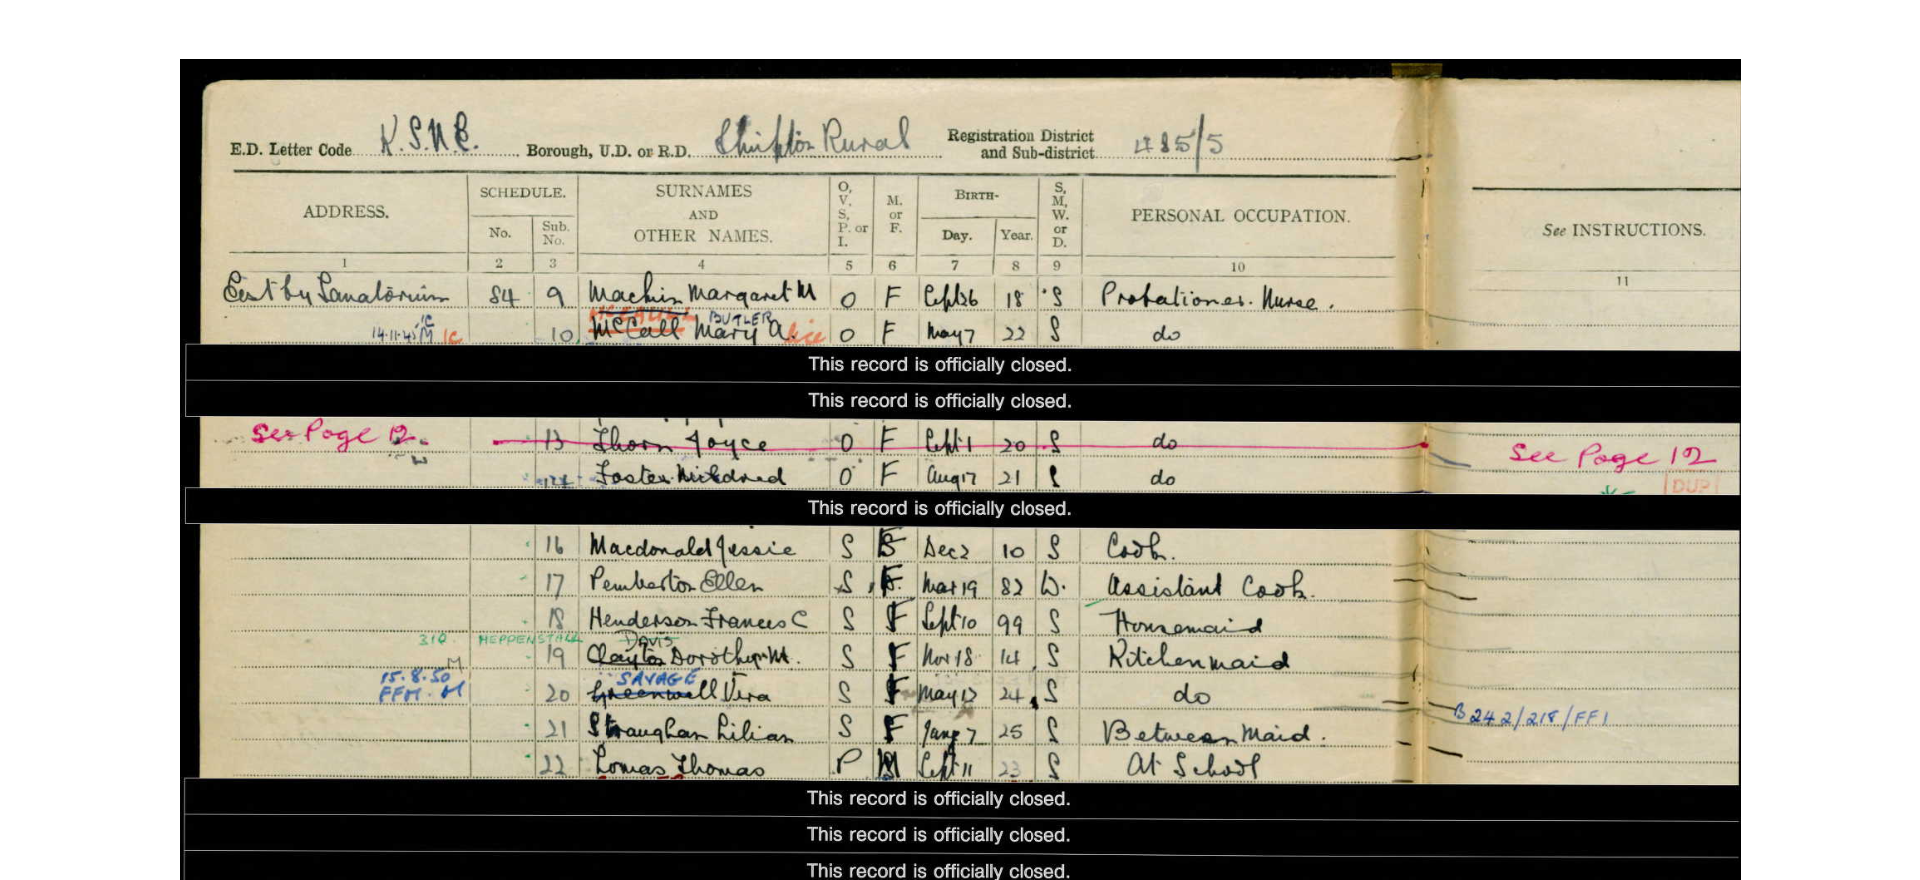 E.D. Letter Code K.S.N.C. Borough, U.D. or R.D. Skipton Rural Registration District and Sub-district 485/5
ADDRESS. SCHEDULE. No. Sub. No. SURNAMES AND OTHER NAMES. O, V, S, P. or I. M. or F. BIRTH- Day. Year. S, M, W. or D. PERSONAL OCCUPATION. See INSTRUCTIONS.
1 2 3 4 5 6 7 8 9 10 11
Eastby Sanatorium 84 9 Machin Margaret M O F Sept 26 18 S Probationer Nurse.
BUTLER
14.11.45 IC 10 McCall Mary A. lice O F May 7 22 S do
This record is officially closed.
This record is officially closed.
See Page 12. 13 Thorn Joyce O F Sept 1 20 S do See Page 12
Foster Mildred O F Aug 17 21 S do DUP
This record is officially closed.
16 Macdonald Jessie S F Dec 2 10 S Cook.
17 Pemberton Ellen S F Mar 19 82 W. Assistant Cook.
18 Henderson Frances C S F Sept 10 99 S Housemaid
310 HEPPENSTALL DAVIS
M 19 Clayton Dorothy M. S F Nov 18 14 S Kitchenmaid
15.8.50 SAVAGE
FFM. M 20 Greenwell Vera S F May 12 24 S do
B 242/218/FFI
21 Straughan Lilian S F June 7 25 S Between Maid.
22 Lomas Thomas P M Sept 11 23 S At School
This record is officially closed.
This record is officially closed.
This record is officially closed.